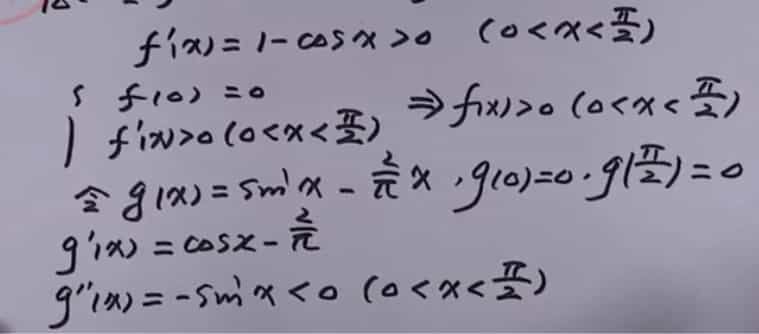 f'(x) = 1 - cos x > 0 (0 < x < π/2)
{ f(0) = 0
f'(x) > 0 (0 < x < π/2) ⇒ f(x) > 0 (0 < x < π/2)
令 g(x) = sin x - 2/π x , g(0) = 0 . g(π/2) = 0
g'(x) = cos x - 2/π
g''(x) = - sin x < 0 (0 < x < π/2)